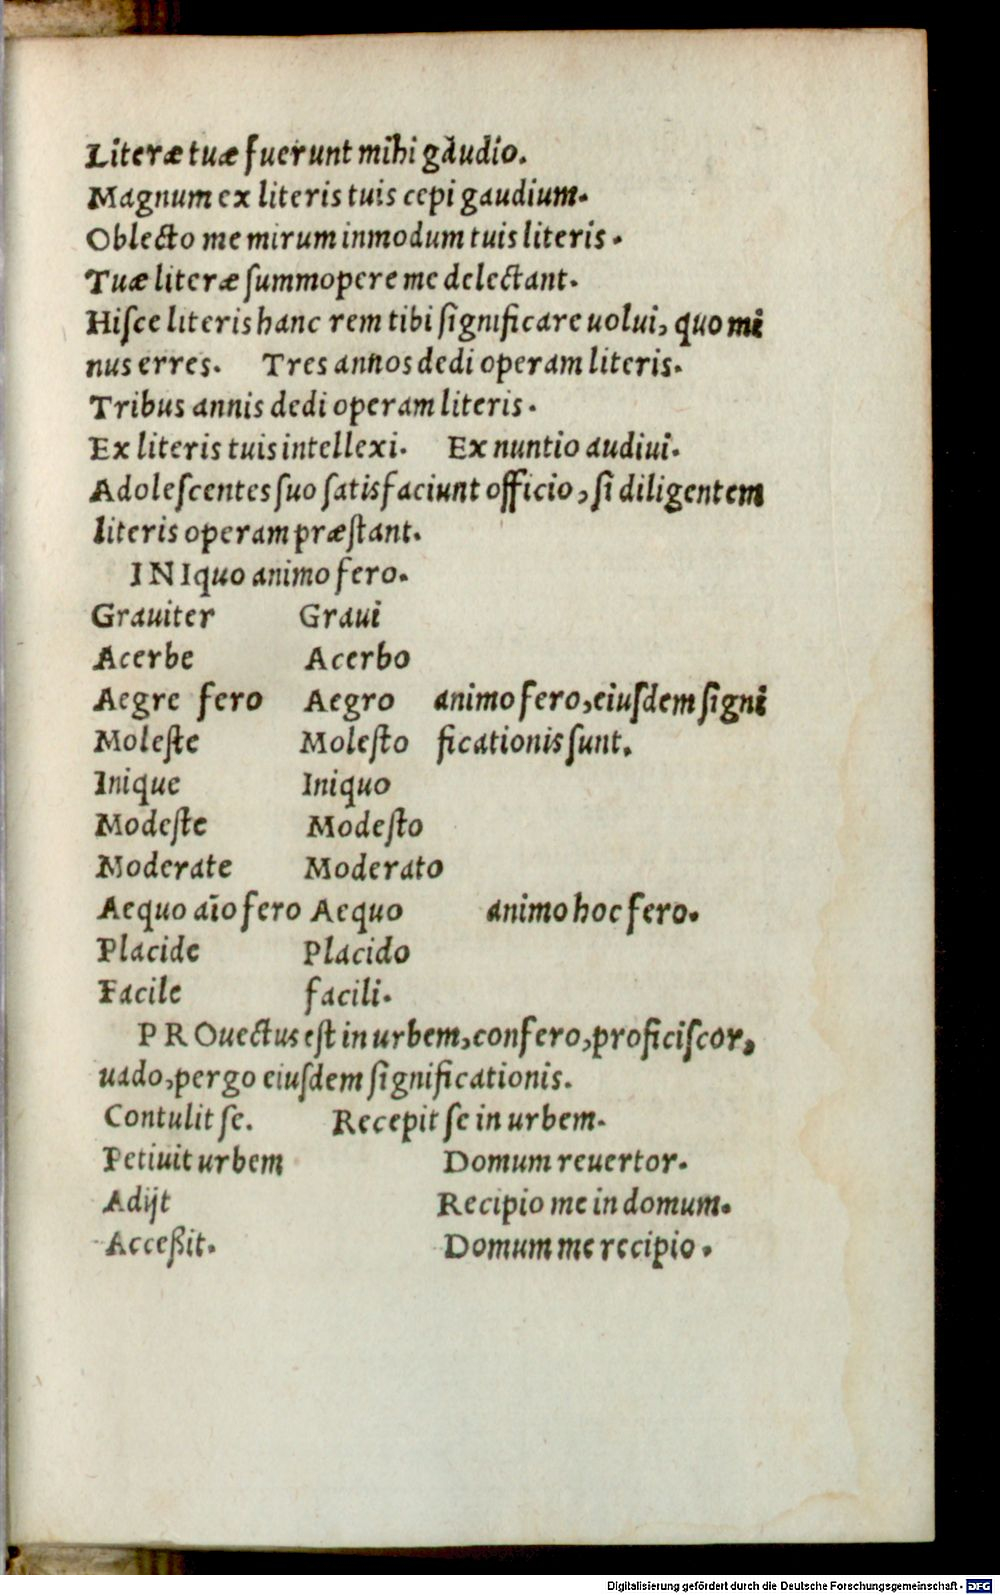 Literæ tuæ fuerunt mihi gaudio.
Magnum ex literis tuis cepi gaudium.
Oblecto me mirum inmodum tuis literis.
Tuæ literæ ſummopere me delectant.
Hiſce literis hanc rem tibi ſignificare uolui, quo mi
nus erres. Tres annos dedi operam literis.
Tribus annis dedi operam literis.
Ex literis tuis intellexi. Ex nuntio audiui.
Adoleſcentes ſuo ſatisfaciunt officio, ſi diligentem
literis operam præſtant.
INIquo animo fero.
Grauiter Graui
Acerbe Acerbo
Aegre fero Aegro animo fero, eiuſdem ſigni
Moleſte Moleſto ficationis ſunt.
Inique Iniquo
Modeſte Modeſto
Moderate Moderato
Aequo aīo fero Aequo animo hoc fero.
Placide Placido
Facile facili.
PROuectus eſt in urbem, confero, proficiſcor,
uado, pergo eiuſdem ſignificationis.
Contulit ſe. Recepit ſe in urbem.
Petiuit urbem Domum reuertor.
Adijt Recipio me in domum.
Acceßit. Domum me recipio.
Digitalisierung gefördert durch die Deutsche Forschungsgemeinschaft - DFG